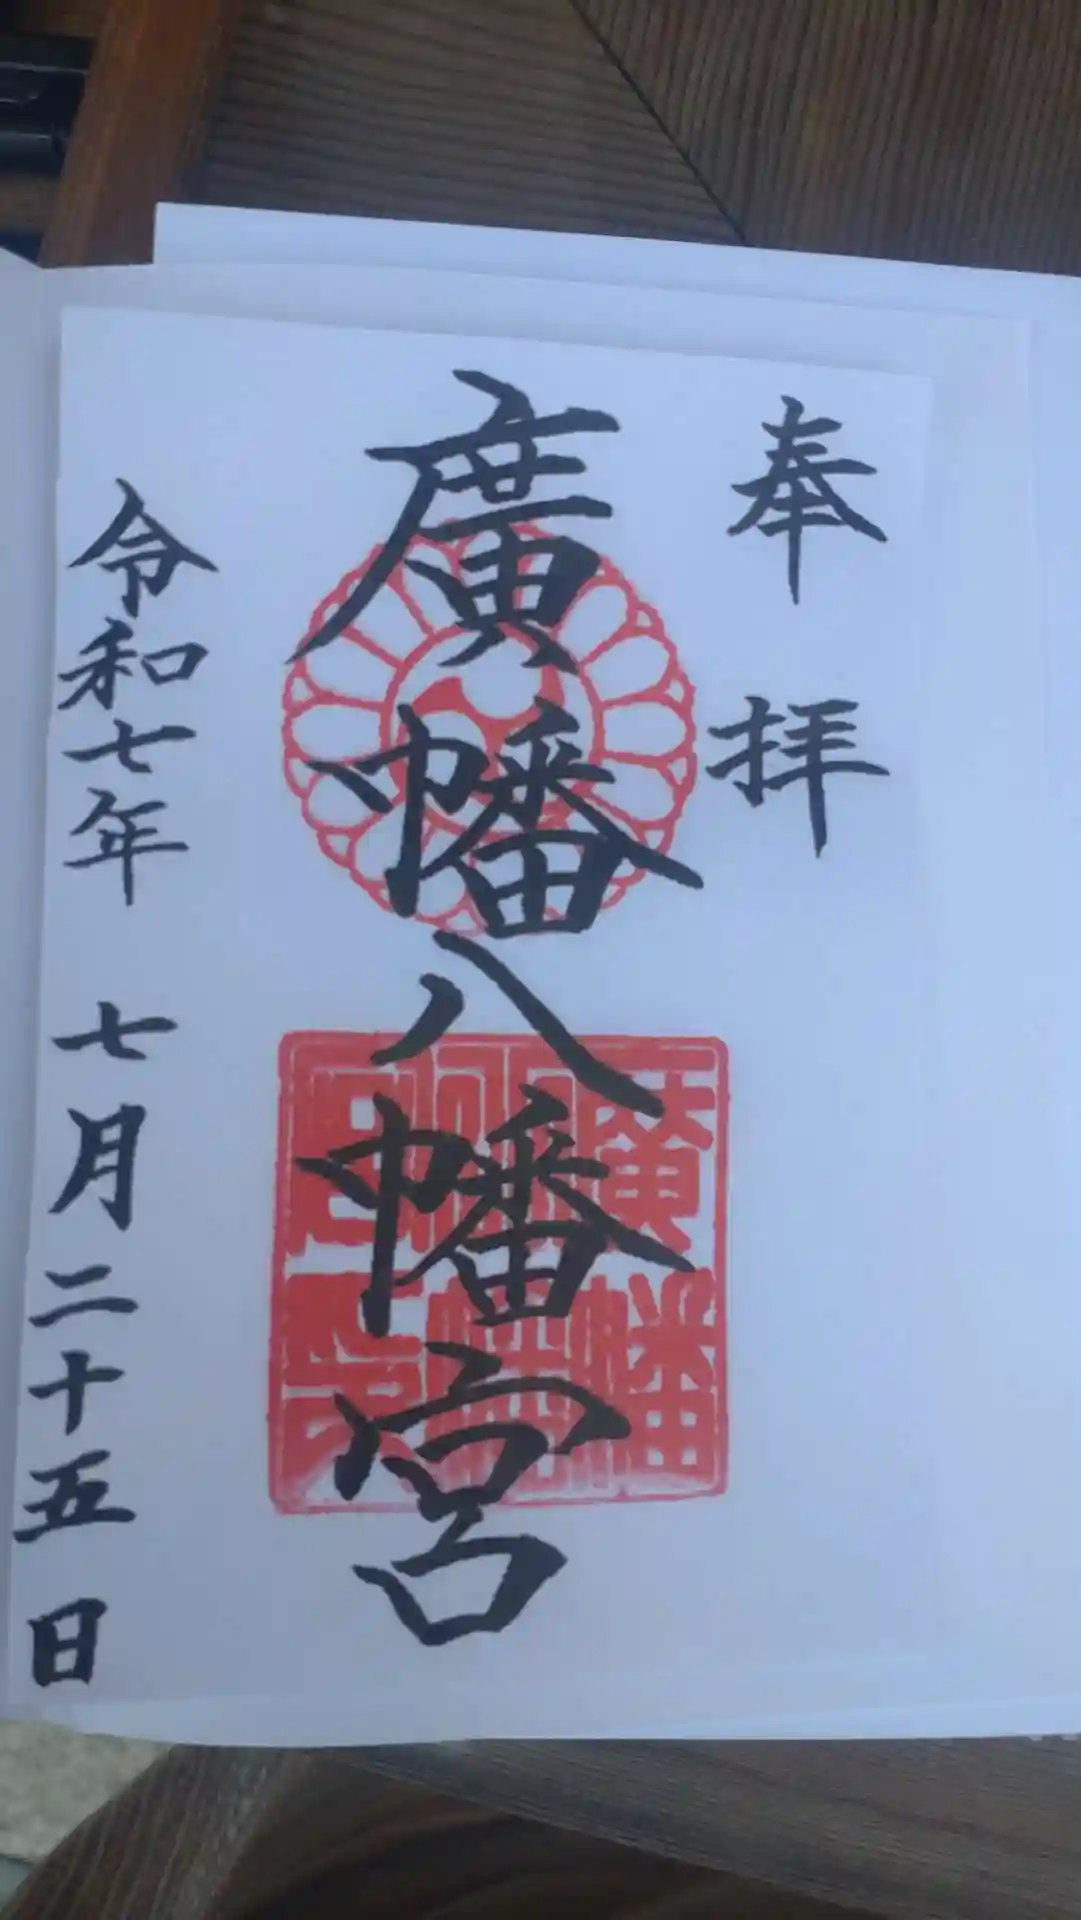 奉拝
廣幡八幡宮
廣幡
八幡
宮
令和七年 七月二十五日